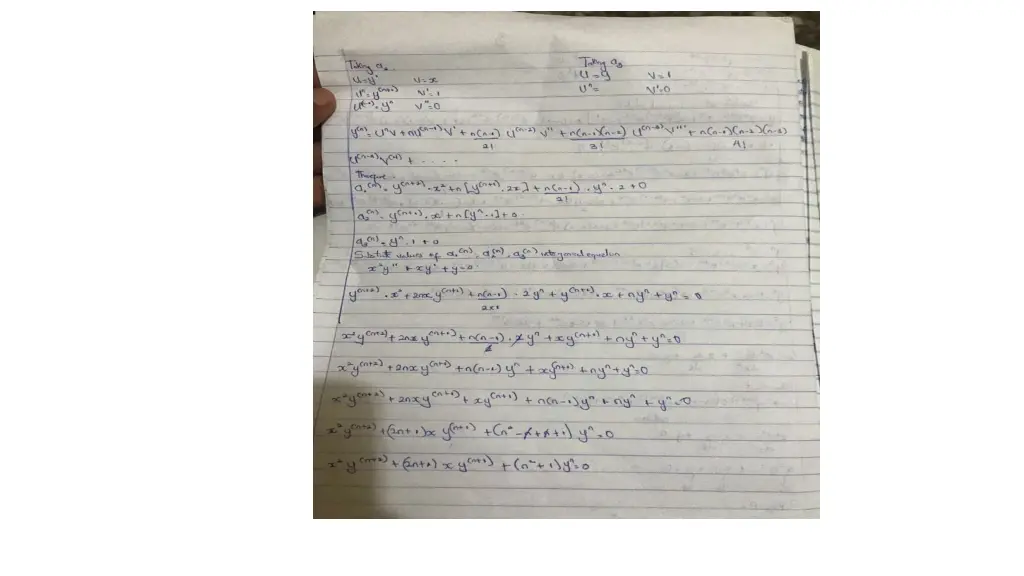 Taking a₂ Taking a₃
U=y' V=x U=y V=1
Uⁿ=y⁽ⁿ⁺¹⁾ V'=1 Uⁿ= V'=0
U⁽ⁿ⁻¹⁾=yⁿ V''=0
y⁽ⁿ⁾= UⁿV + nU⁽ⁿ⁻¹⁾V' + n(n-1)/2! U⁽ⁿ⁻²⁾V'' + n(n-1)(n-2)/3! U⁽ⁿ⁻³⁾V''' + n(n-1)(n-2)(n-3)/4!
U⁽ⁿ⁻⁴⁾V⁽⁴⁾ + ....
Therefore
a₁⁽ⁿ⁾= y⁽ⁿ⁺²⁾·x² + n[y⁽ⁿ⁺¹⁾·2x] + n(n-1)/2! · yⁿ · 2 + 0
a₂⁽ⁿ⁾= y⁽ⁿ⁺¹⁾·x + n[yⁿ·1] + 0
a₃⁽ⁿ⁾= yⁿ·1 + 0
values of a₁⁽ⁿ⁾, a₂⁽ⁿ⁾, a₃⁽ⁿ⁾
x²y'' + xy' + y=0
y⁽ⁿ⁺²⁾·x² + 2nxy⁽ⁿ⁺¹⁾ + n(n-1)/2×1 · 2yⁿ + y⁽ⁿ⁺¹⁾·x + nyⁿ + yⁿ = 0
x²y⁽ⁿ⁺²⁾ + 2nxy⁽ⁿ⁺¹⁾ + n(n-1)/2 · 2yⁿ + xy⁽ⁿ⁺¹⁾ + nyⁿ + yⁿ=0
x²y⁽ⁿ⁺²⁾ + 2nxy⁽ⁿ⁺¹⁾ + n(n-1)yⁿ + xy⁽ⁿ⁺¹⁾ + nyⁿ + yⁿ=0
x²y⁽ⁿ⁺²⁾ + 2nxy⁽ⁿ⁺¹⁾ + xy⁽ⁿ⁺¹⁾ + n(n-1)yⁿ + nyⁿ + yⁿ=0
x²y⁽ⁿ⁺²⁾ + (2n+1)x y⁽ⁿ⁺¹⁾ + (n²-n+n+1) yⁿ=0
x²y⁽ⁿ⁺²⁾ + (2n+1)xy⁽ⁿ⁺¹⁾ + (n²+1)yⁿ=0